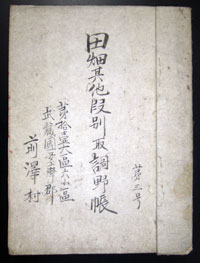 第三号
田畑其他段別取調野帳
第拾壹大區六小區
武藏國多摩郡
前澤村